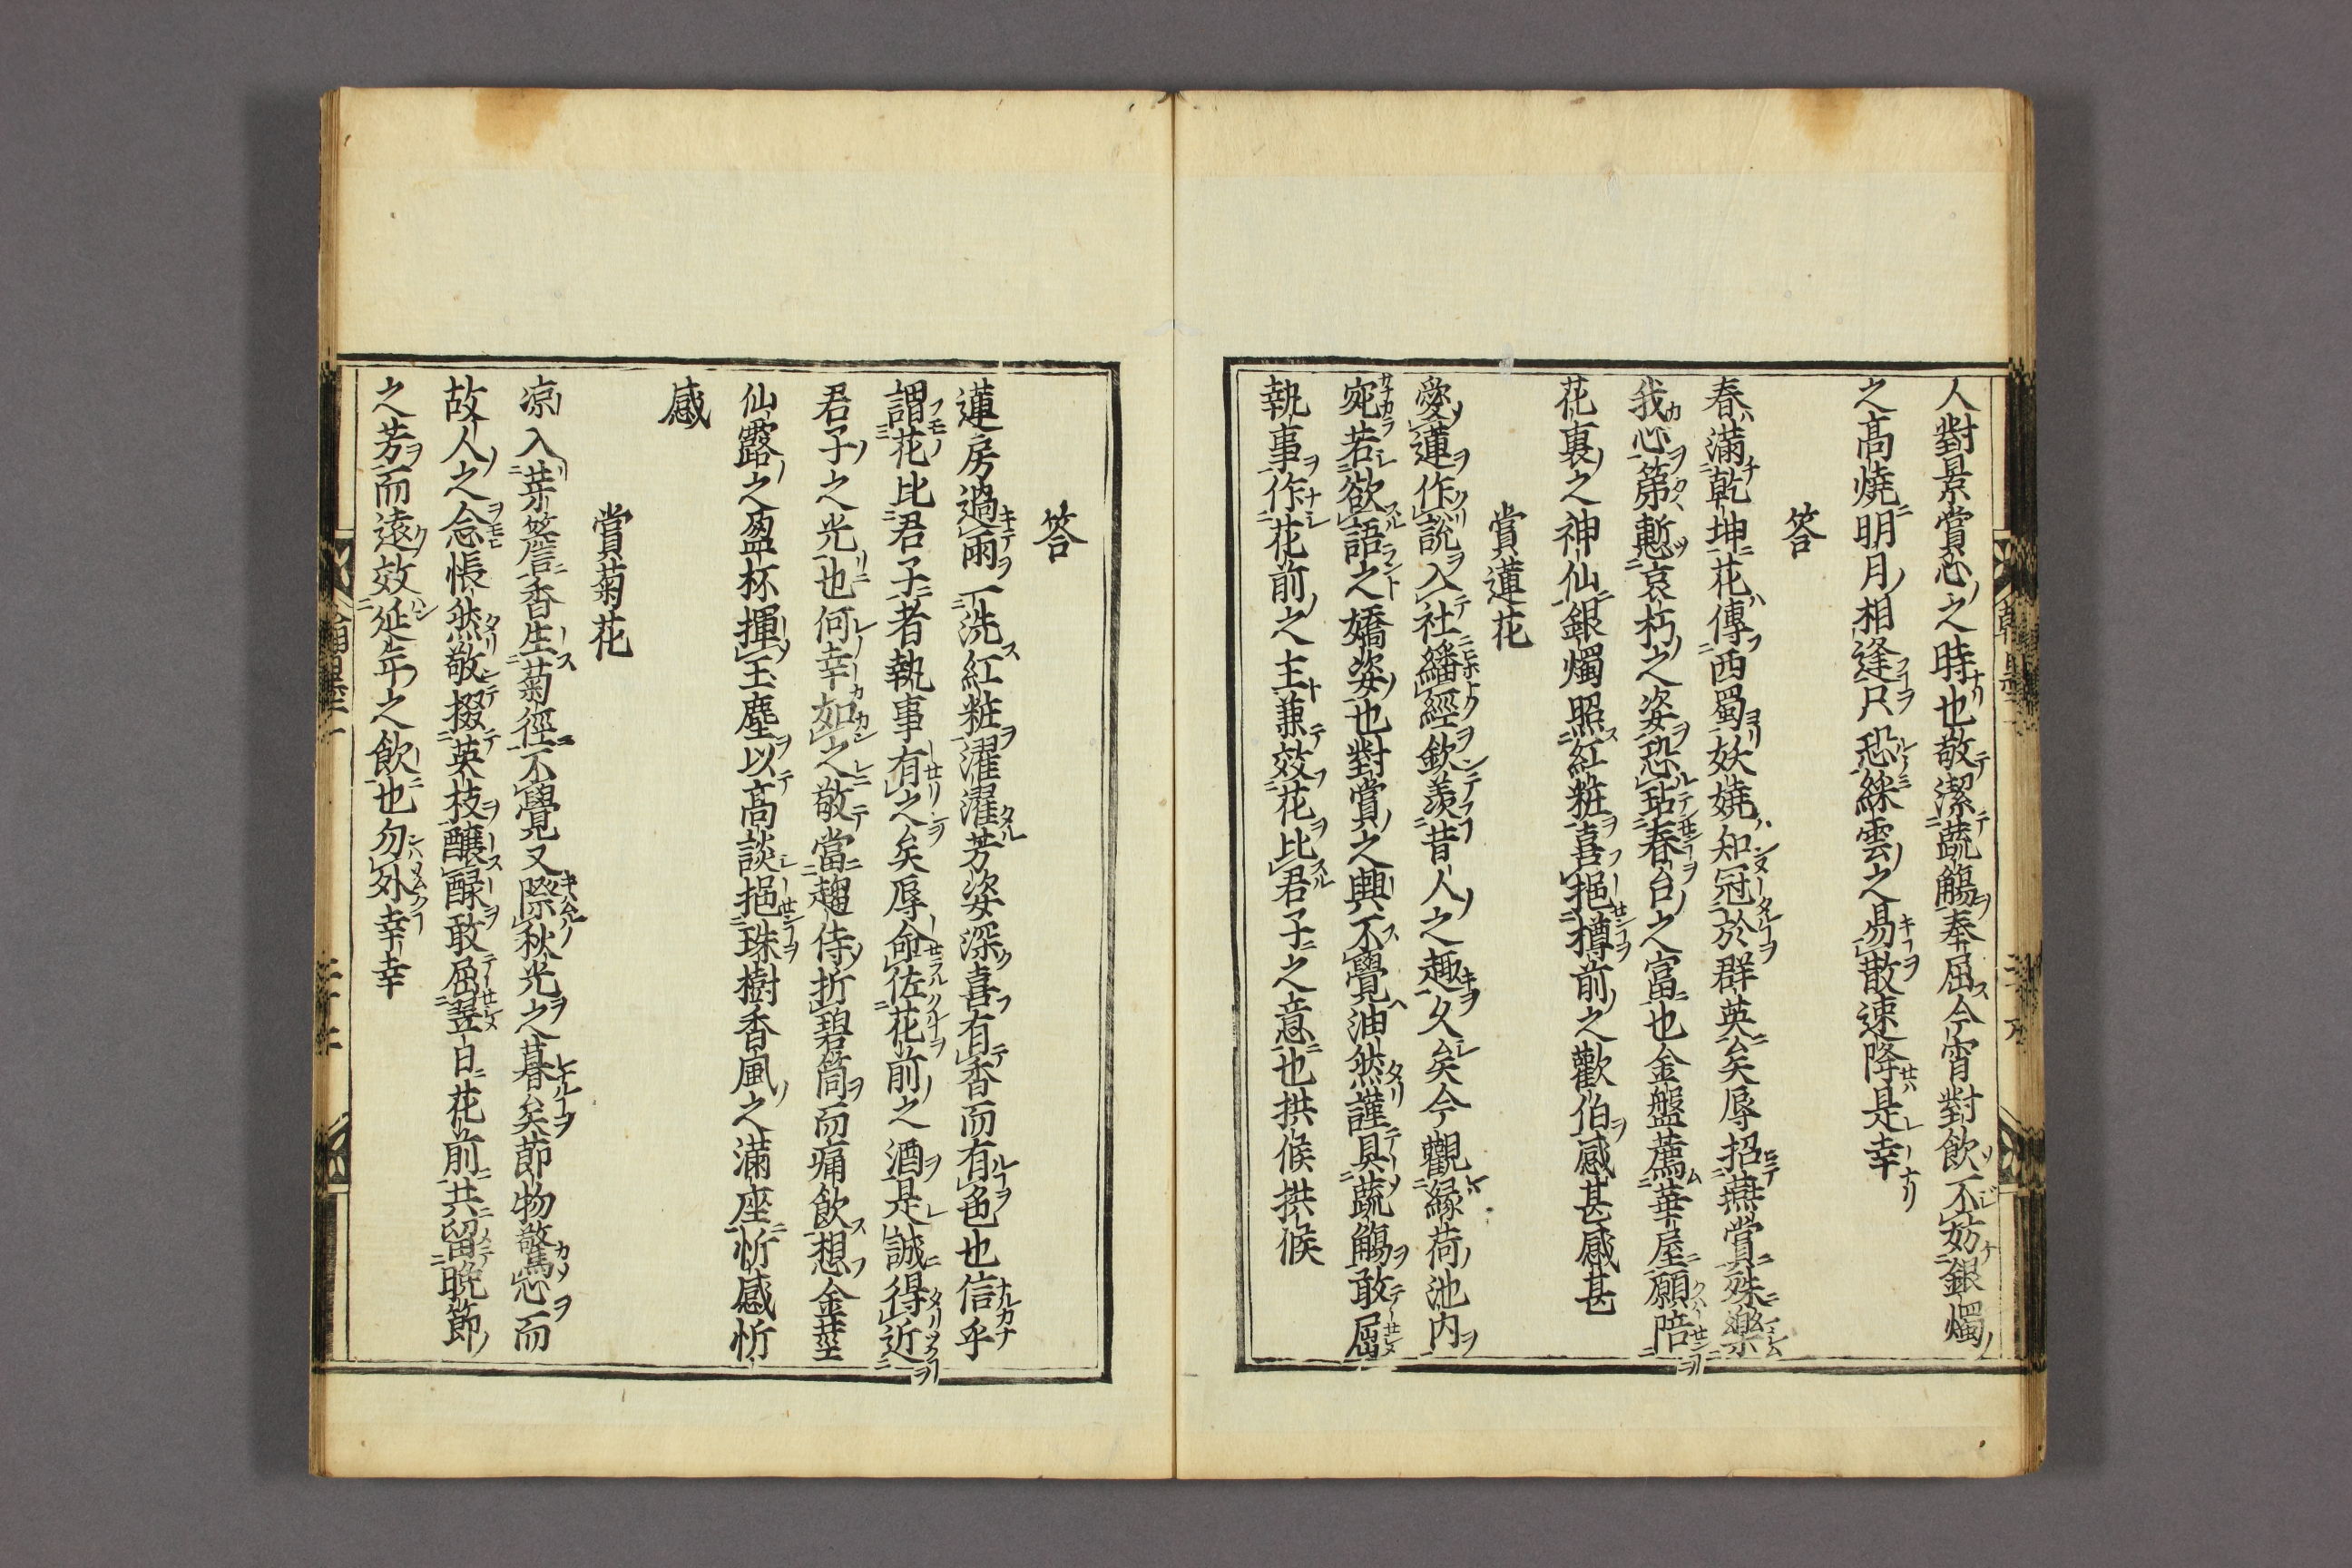 人對景賞心之時也敬潔蔬觴奉屈今宵對飲不妨銀燭
之高燒明月相逢只恐綵雲之易散速降是幸
答
春滿乾坤花傳西蜀妖嬈知冠於群英矣辱招燕賞殊樂
我心第慙哀朽之姿恐玷春台之富也金盤薦華屋願陪
花裏之神仙銀燭照紅粧喜挹樽前之歡伯感甚感甚
賞蓮花
愛蓮作說入社繙經欽羨昔人之趣久矣今觀綠荷池內
宛若欲語之嬌姿也對賞之興不覺油然謹具蔬觴敢屈
執事作花前之主兼效花比君子之意也拱候拱候
答
蓮房過雨一洗紅粧濯濯芳姿深喜有香而有色也信乎
謂花比君子者執事有之矣辱命佐花前之酒是誠得近
君子之光也何幸如之敬當趨侍折碧筒而痛飲想金莖
仙露之盈杯揮玉麈以高談挹珠樹香風之滿座忻感忻
感
賞菊花
凉入茅簷香生菊徑不覺又際秋光之暮矣節物驚心而
故人之念悵然敬掇英枝釀醁敢屈翌日花前共留晚節
之芳而遠效延年之飲也勿外幸幸
翰墨